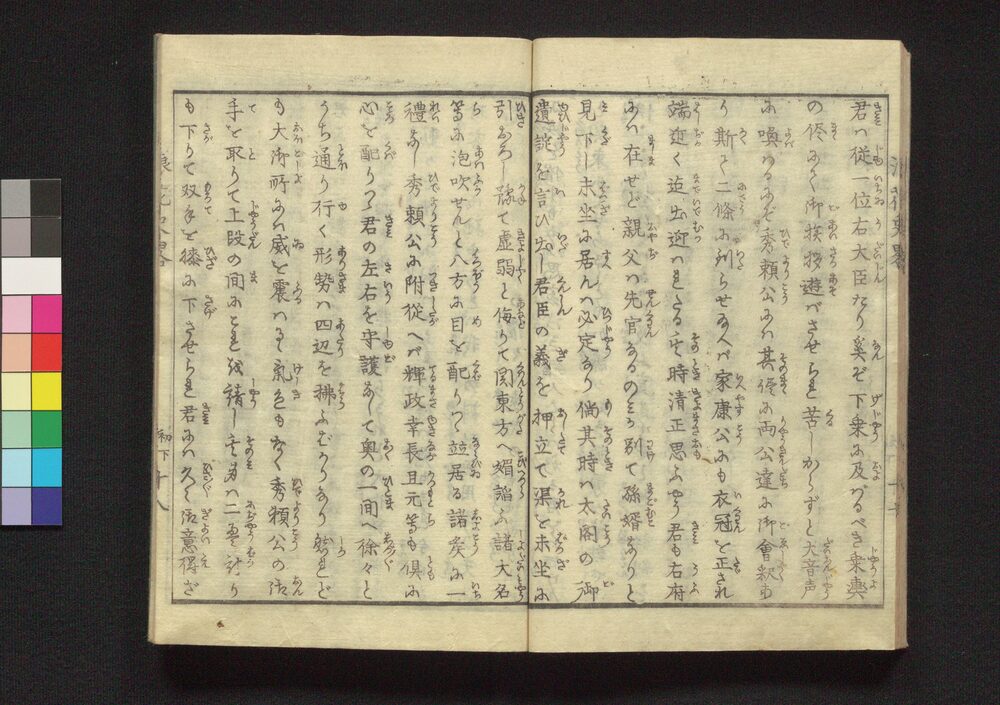 君ハ従一位右大臣なり奚ぞ下乗に及バるべき乗輿
の侭にて御挨拶遊バさせられ苦しからずと大音声
に喚はるにぞ秀頼公にハ其侭に両公達に御會釈有
り斯て二條に到らせ給へバ家康公にも衣冠を正され
端近く迄出迎ハせたる其時清正思ふやう君も右府
にハ在せど親父ハ先官なるのミか別て孫婿なりと
見下し末坐に居んハ必定なり倘其時ハ太閤の御
遺錠を言ひ出し君臣の義を押立て渠を末坐に
引おろし豫て虚弱と侮りて関東方へ媚諂ふ諸大名
等に泡吹せんと八方に目を配りつゝ並居る諸矦に一
禮なし秀頼公に附従へバ輝政幸長且元等も倶に
心を配りつゝ君の左右を守護なして奥の一間へ徐々と
うち通り行く形勢ハ四辺を拂ふばかりなり然れど
も大御所にハ威を震ハれし気色もなく秀頼公の御
手を取りて上段の間に
も下りて双手を膝に下させられ君にハ久々御意得ざ
初下 十八